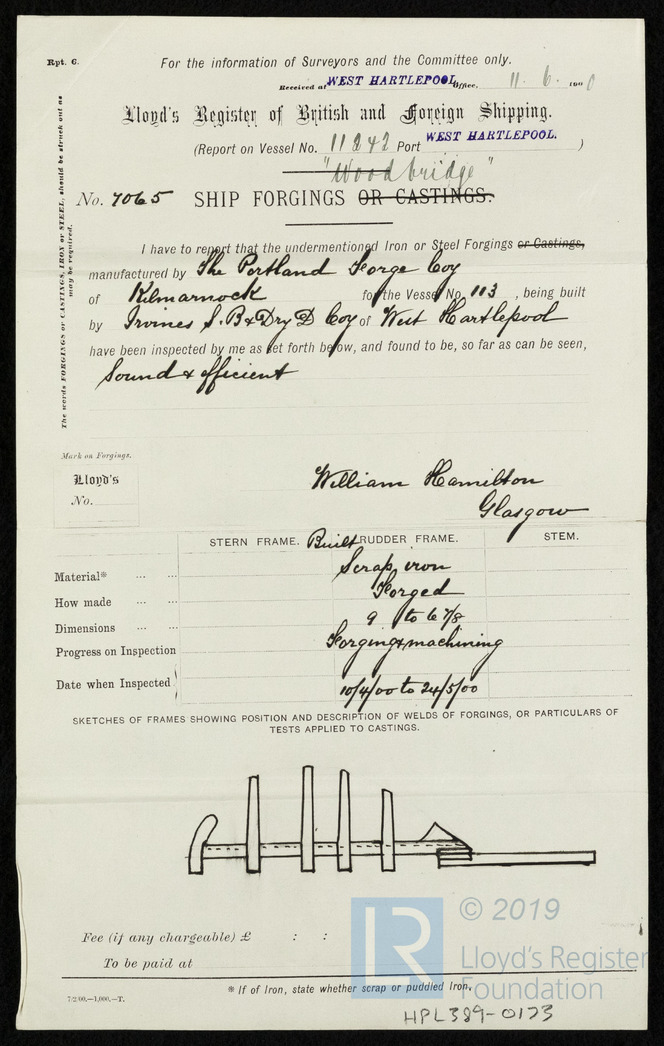 Rpt. 6.
For the information of Surveyors and the Committee only.
Received at WEST HARTLEPOOL Office, 11. 6. 1900
Lloyd's Register of British and Foreign Shipping.
(Report on Vessel No. 11242 Port WEST HARTLEPOOL. )
"Woodbridge"
No. 7065 SHIP FORGINGS OR CASTINGS.
The words FORGINGS or CASTINGS, IRON or STEEL, should be struck out as
may be required.
I have to report that the undermentioned Iron or Steel Forgings or Castings,
manufactured by The Portland Forge Coy
of Kilmarnock for the Vessel No. 113, being built
by Irvines S.B & Dry D Coy of West Hartlepool
have been inspected by me as set forth below, and found to be, so far as can be seen,
Sound & efficient
Mark on Forgings.
Lloyd's
No.
William Hamilton
Glasgow
STERN FRAME. Built RUDDER FRAME. STEM.
Material* ... ... Scrap iron
How made ... ... Forged
Dimensions ... ... 9 to 6 7/8
Progress on Inspection Forging & machining
Date when Inspected 10/4/00 to 24/5/00
SKETCHES OF FRAMES SHOWING POSITION AND DESCRIPTION OF WELDS OF FORGINGS, OR PARTICULARS OF
TESTS APPLIED TO CASTINGS.
Fee (if any chargeable) £ : :
To be paid at
* If of Iron, state whether scrap or puddled Iron.
7/2/00.—1,000.—T.
LR
© 2019
Lloyd's Register
Foundation
HPL389-0173